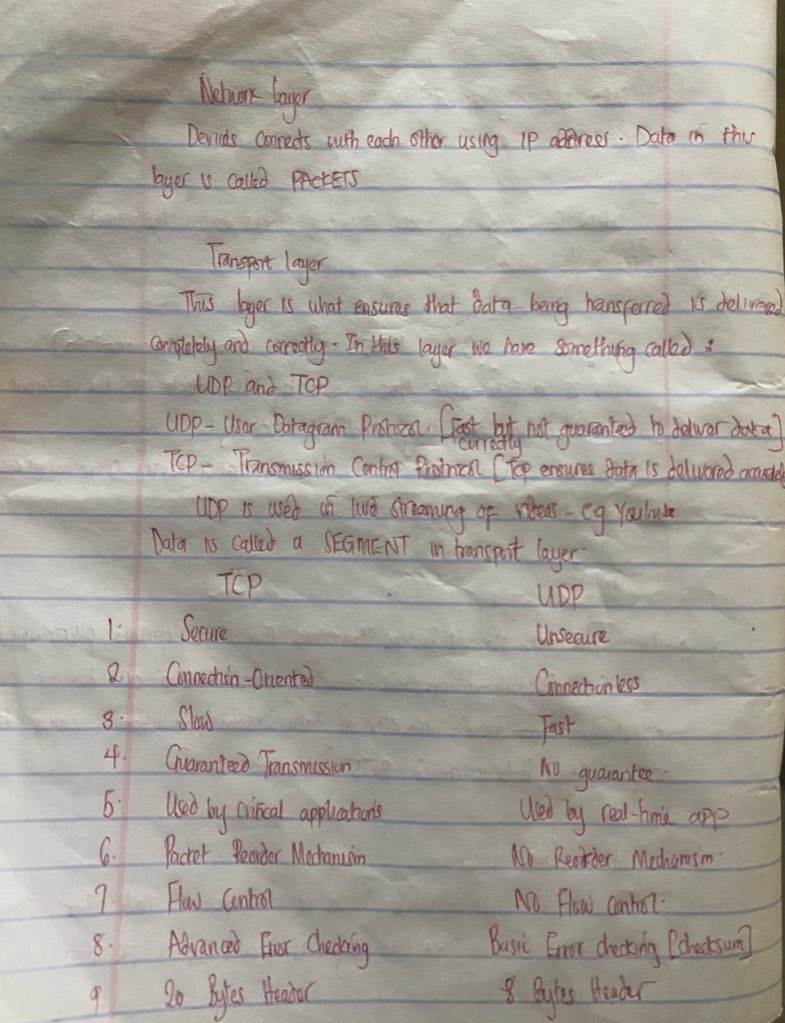 Network layer
Devices connects with each other using IP address. Data in this
layer is called PACKETS
Transport layer
This layer is what ensures that data being transferred is delivered
completely and correctly. In this layer we have something called :
UDP and TCP
UDP - User Datagram Protocol [Fast but not guaranteed to deliver data]
currectly
TCP - Transmission Control Protocol [Tcp ensures data is delivered
UDP is used in live streaming of videos - eg YouTube
Data is called a SEGMENT in transport layer.
TCP UDP
1. Secure Unsecure
2. Connection-Oriented Connectionless
3. Slow Fast
4. Guaranteed Transmission No guarantee.
5. Used by critical applications Used by real-time app
6. Packet Reorder Mechanism No Reorder Mechanism.
7. Flow Control No Flow control.
8. Advanced Error Checking Basic Error checking [checksum]
9. 20 Bytes Header 8 Bytes Header